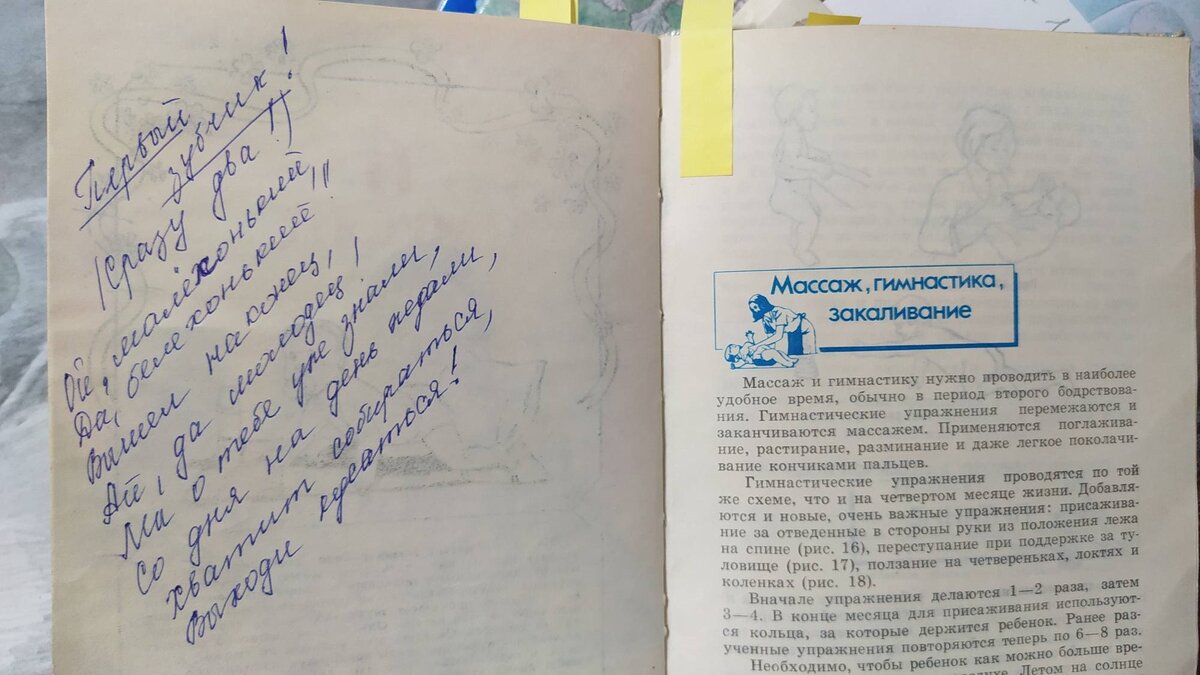 Первый
зубчик!
(Сразу два!)
Ой, малёхонький,
Да, белехонький!!!
Вышел наконец,
Ай, да молодец!
Мы о тебе уже знали,
Со дня на день ждали,
Хватит собираться,
Выходи кусаться!
Массаж, гимнастика,
закаливание
Массаж и гимнастику нужно проводить в наиболее
удобное время, обычно в период второго бодрствова-
ния. Гимнастические упражнения перемежаются и
заканчиваются массажем. Применяются поглажива-
ние, растирание, разминание и даже легкое поколачи-
вание кончиками пальцев.
Гимнастические упражнения проводятся по той
же схеме, что и на четвертом месяце жизни. Добавля-
ются и новые, очень важные упражнения: присажива-
ние за отведенные в стороны руки из положения лежа
на спине (рис. 16), переступание при поддержке за ту-
ловище (рис. 17), ползание на четвереньках, локтях и
коленках (рис. 18).
Вначале упражнения делаются 1—2 раза, затем
3—4. В конце месяца для присаживания используют-
ся кольца, за которые держится ребенок. Ранее раз-
ученные упражнения повторяются теперь по 6—8 раз.
Необходимо, чтобы ребенок как можно больше вре-
Летом на солнце